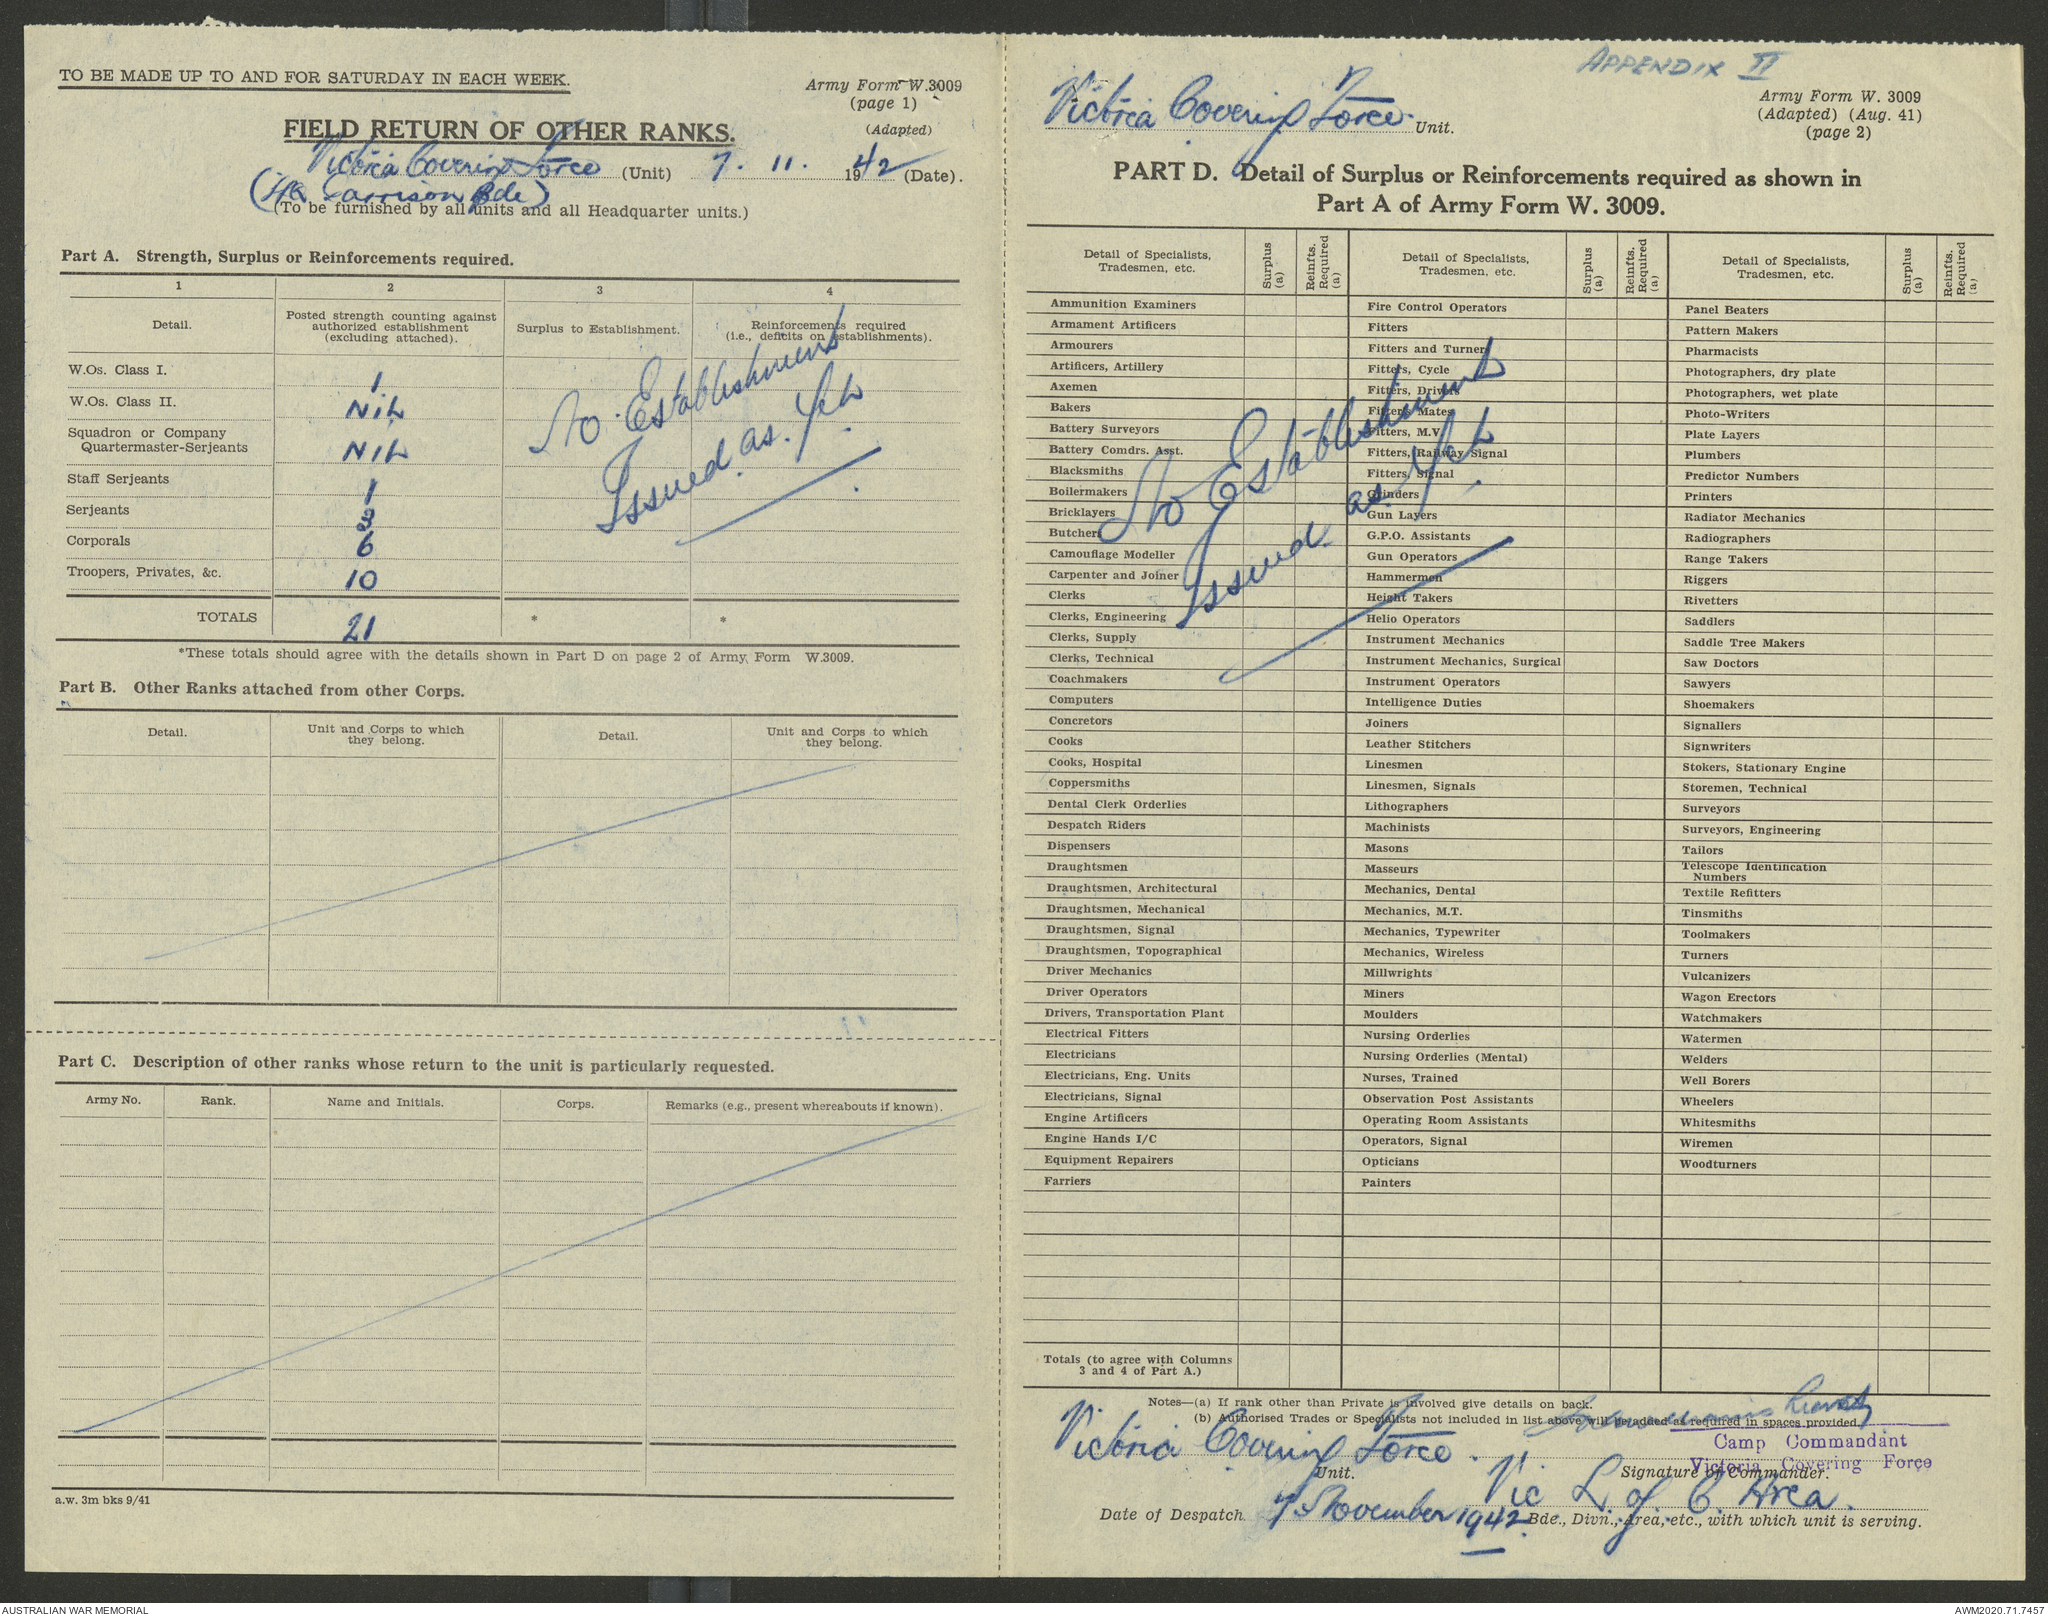 TO BE MADE UP TO AND FOR SATURDAY IN EACH WEEK.
Army Form W.3009
(page 1)
(Adapted)
FIELD RETURN OF OTHER RANKS.
Victoria Covering Force (Unit) 7. 11. 1942 (Date).
(HQ Garrison Bde)
(To be furnished by all units and all Headquarter units.)
Part A. Strength, Surplus or Reinforcements required.
1 2 3 4
Detail.
Posted strength counting against
authorized establishment
(excluding attached).
Surplus to Establishment.
Reinforcements required
(i.e., deficits on establishments).
W.Os. Class I. 1
W.Os. Class II. NIL
Squadron or Company
Quartermaster-Serjeants NIL
Staff Serjeants 1
Serjeants 3
Corporals 6
Troopers, Privates, &c. 10
TOTALS 21 * *
No Establishment
Issued as Yet
*These totals should agree with the details shown in Part D on page 2 of Army Form W.3009.
Part B. Other Ranks attached from other Corps.
Detail.
Unit and Corps to which
they belong.
Detail.
Unit and Corps to which
they belong.
Part C. Description of other ranks whose return to the unit is particularly requested.
Army No. Rank. Name and Initials. Corps. Remarks (e.g., present whereabouts if known).
a.w. 3m bks 9/41
APPENDIX II
Victoria Covering Force. Unit.
Army Form W. 3009
(Adapted) (Aug. 41)
(page 2)
PART D. Detail of Surplus or Reinforcements required as shown in
Part A of Army Form W. 3009.
Detail of Specialists,
Tradesmen, etc.
Surplus
(a)
Reinfts.
Required
(a)
Ammunition Examiners
Armament Artificers
Armourers
Artificers, Artillery
Axemen
Bakers
Battery Surveyors
Battery Comdrs. Asst.
Blacksmiths
Boilermakers
Bricklayers
Butchers
Camouflage Modeller
Carpenter and Joiner
Clerks
Clerks, Engineering
Clerks, Supply
Clerks, Technical
Coachmakers
Computers
Concretors
Cooks
Cooks, Hospital
Coppersmiths
Dental Clerk Orderlies
Despatch Riders
Dispensers
Draughtsmen
Draughtsmen, Architectural
Draughtsmen, Mechanical
Draughtsmen, Signal
Draughtsmen, Topographical
Driver Mechanics
Driver Operators
Drivers, Transportation Plant
Electrical Fitters
Electricians
Electricians, Eng. Units
Electricians, Signal
Engine Artificers
Engine Hands I/C
Equipment Repairers
Farriers
Detail of Specialists,
Tradesmen, etc.
Surplus
(a)
Reinfts.
Required
(a)
Fire Control Operators
Fitters
Fitters and Turners
Fitters, Cycle
Fitters, Drivers
Fitter's Mates
Fitters, M.V.
Fitters, Railway Signal
Fitters, Signal
Grinders
Gun Layers
G.P.O. Assistants
Gun Operators
Hammermen
Height Takers
Helio Operators
Instrument Mechanics
Instrument Mechanics, Surgical
Instrument Operators
Intelligence Duties
Joiners
Leather Stitchers
Linesmen
Linesmen, Signals
Lithographers
Machinists
Masons
Masseurs
Mechanics, Dental
Mechanics, M.T.
Mechanics, Typewriter
Mechanics, Wireless
Millwrights
Miners
Moulders
Nursing Orderlies
Nursing Orderlies (Mental)
Nurses, Trained
Observation Post Assistants
Operating Room Assistants
Operators, Signal
Opticians
Painters
No Establishment
Issued as Yet
Detail of Specialists,
Tradesmen, etc.
Surplus
(a)
Reinfts.
Required
(a)
Panel Beaters
Pattern Makers
Pharmacists
Photographers, dry plate
Photographers, wet plate
Photo-Writers
Plate Layers
Plumbers
Predictor Numbers
Printers
Radiator Mechanics
Radiographers
Range Takers
Riggers
Rivetters
Saddlers
Saddle Tree Makers
Saw Doctors
Sawyers
Shoemakers
Signallers
Signwriters
Stokers, Stationary Engine
Storemen, Technical
Surveyors
Surveyors, Engineering
Tailors
Telescope Identification
Numbers
Textile Refitters
Tinsmiths
Toolmakers
Turners
Vulcanizers
Wagon Erectors
Watchmakers
Watermen
Welders
Well Borers
Wheelers
Whitesmiths
Wiremen
Woodturners
Totals (to agree with Columns
3 and 4 of Part A.)
Notes—(a) If rank other than Private is involved give details on back.
(b) Authorised Trades or Specialists not included in list above will be added as required in spaces provided.
Camp Commandant
Victoria Covering Force
Victoria Covering Force.
Unit.
Signature of Commander.
Vic L. of C. Area.
Date of Despatch 7 November 1942 Bde., Divn., Area, etc., with which unit is serving.
AUSTRALIAN WAR MEMORIAL
AWM2020.71.7457